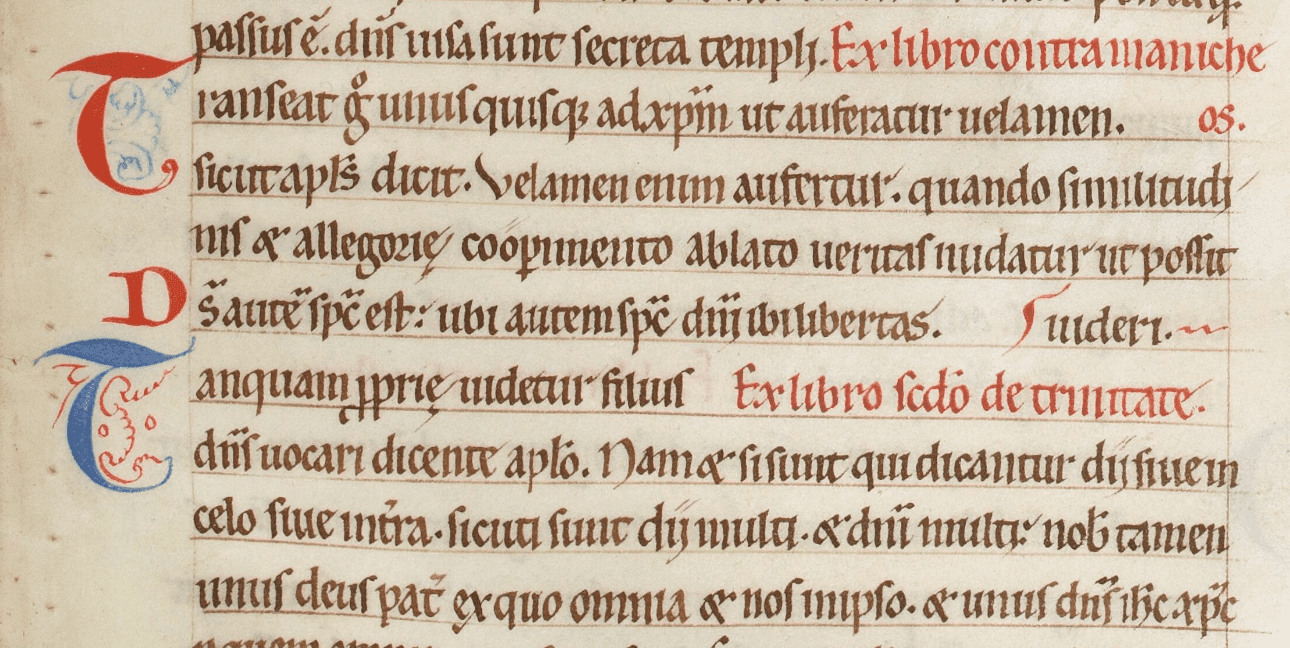 passus ē. dn̄s uisa sunt secreta templi. Ex libro contra maniche
Transeat gͦ unusquisq; ad xp̄m ut auferatur uelamen. os.
sicut apl̄s dicit. Velamen enim aufertur. quando similitudi
nis & allegorię coopimento ablato ueritas nudatur ut possit
D n̄s autē sp̄c est: ubi autem sp̄c dn̄i ibi libertas. uideri.
Tanquam ꝓprię uidetur filius Ex libro scd̄o de trinitate.
dn̄s uocari dicente apl̄o. Nam & si sunt qui dicantur dij siue in
celo siue in tr̄a. sicuti sunt dij multi. & dn̄i multi: nob̄ tamen
unus deus pat̄ ex quo omnia & nos in ipso. & unus dn̄s ih̄c xp̄c